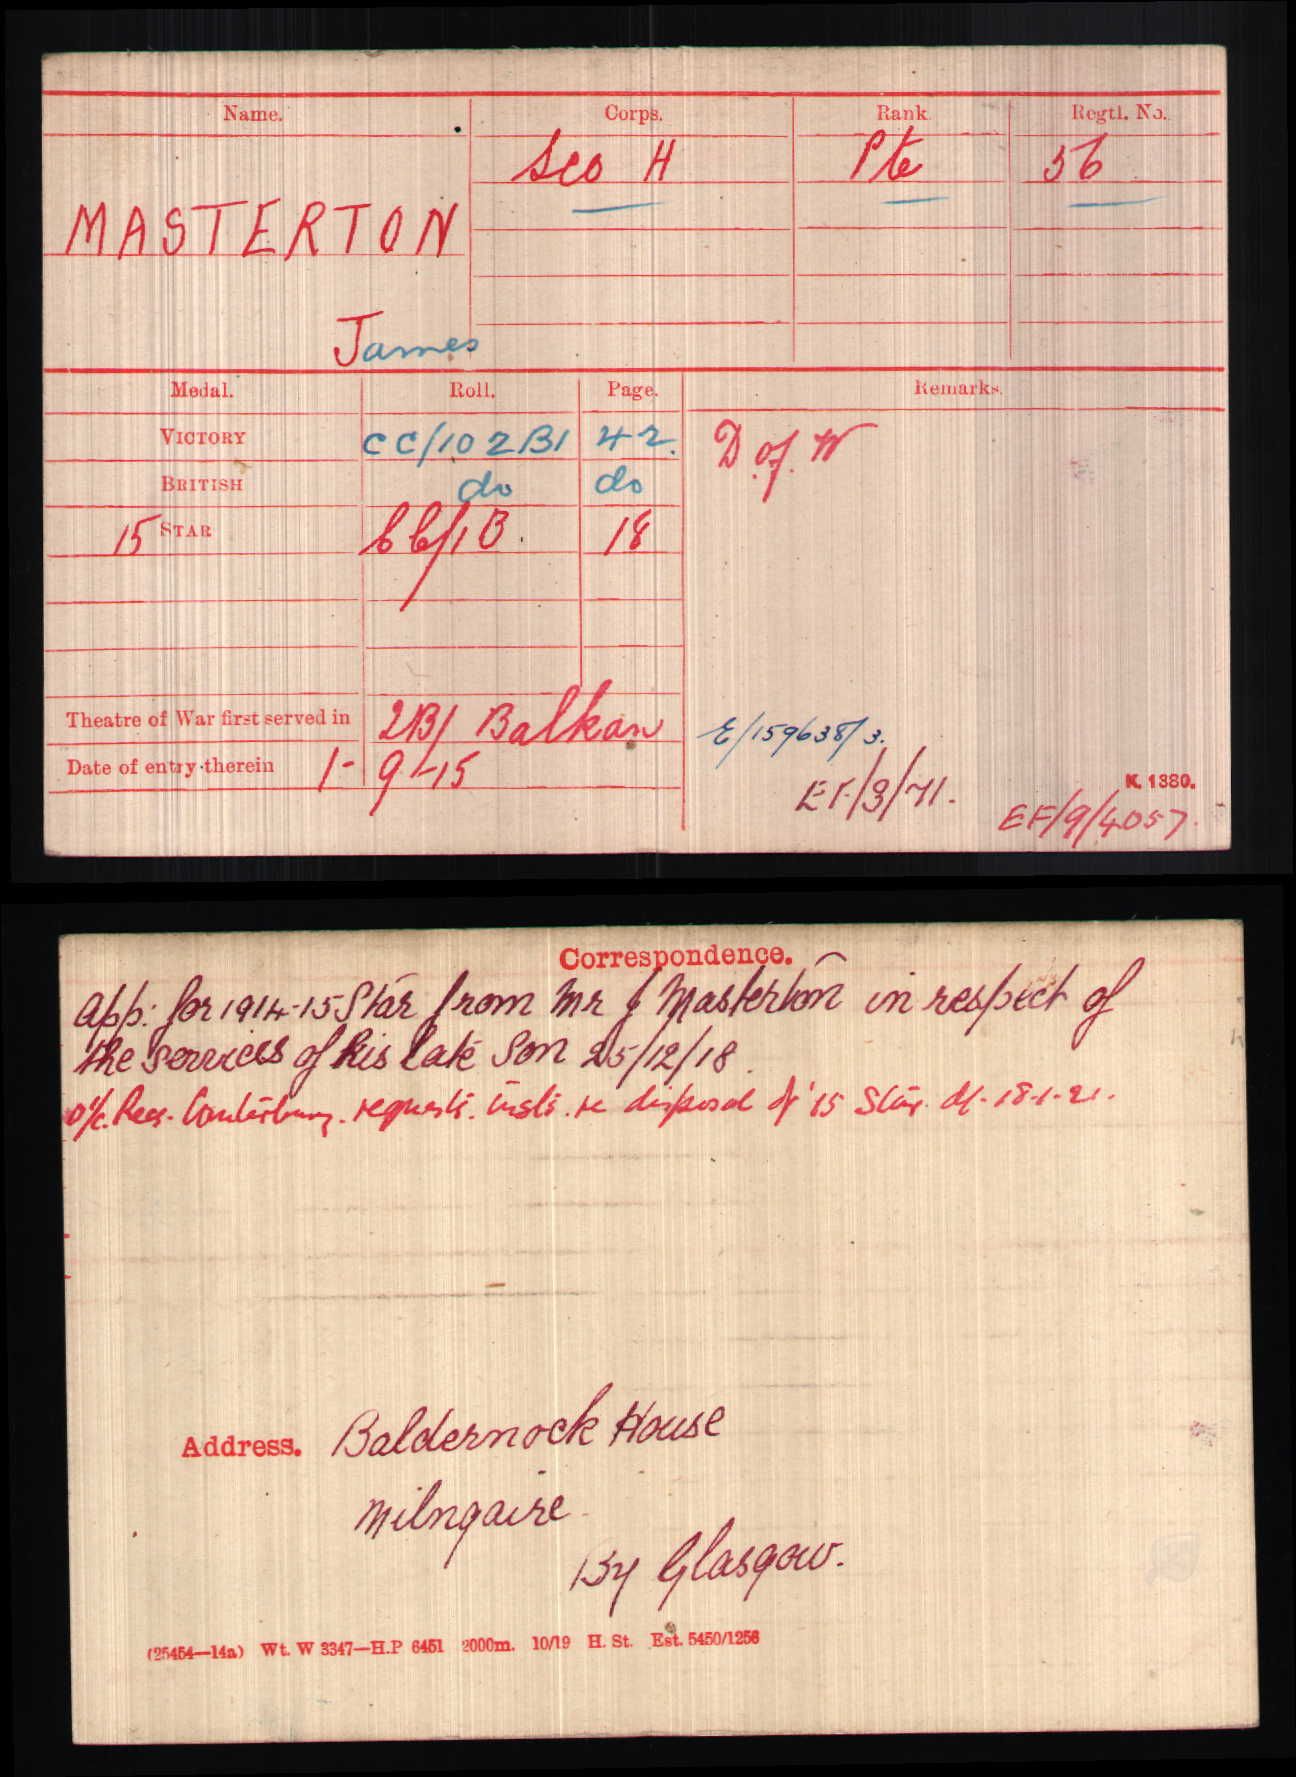 Name. Corps. Rank Regtl. No.
Sco H Pte 56
MASTERTON
James
Medal. Roll. Page. Remarks.
VICTORY CC/102B1 42. D of W
BRITISH do do
15 STAR CC/1B. 18
Theatre of War first served in 2B/ Balkan E/159638/3.
Date of entry therein 1-9-15 EF/3/71.
K. 1380.
EF/9/4057.
Correspondence.
app: for 1914-15 Star from Mr J Masterton in respect of
the services of his late Son 25/12/18.
O/c. Recs. Canterbury. requests. insts. re disposal of '15 Star. df. 18-1-21.
Address. Baldernock House
Milngaire
By Glasgow.
(25454—14a) Wt. W 3347—H.P 6451 2000m. 10/19 H. St. Est. 5450/1256